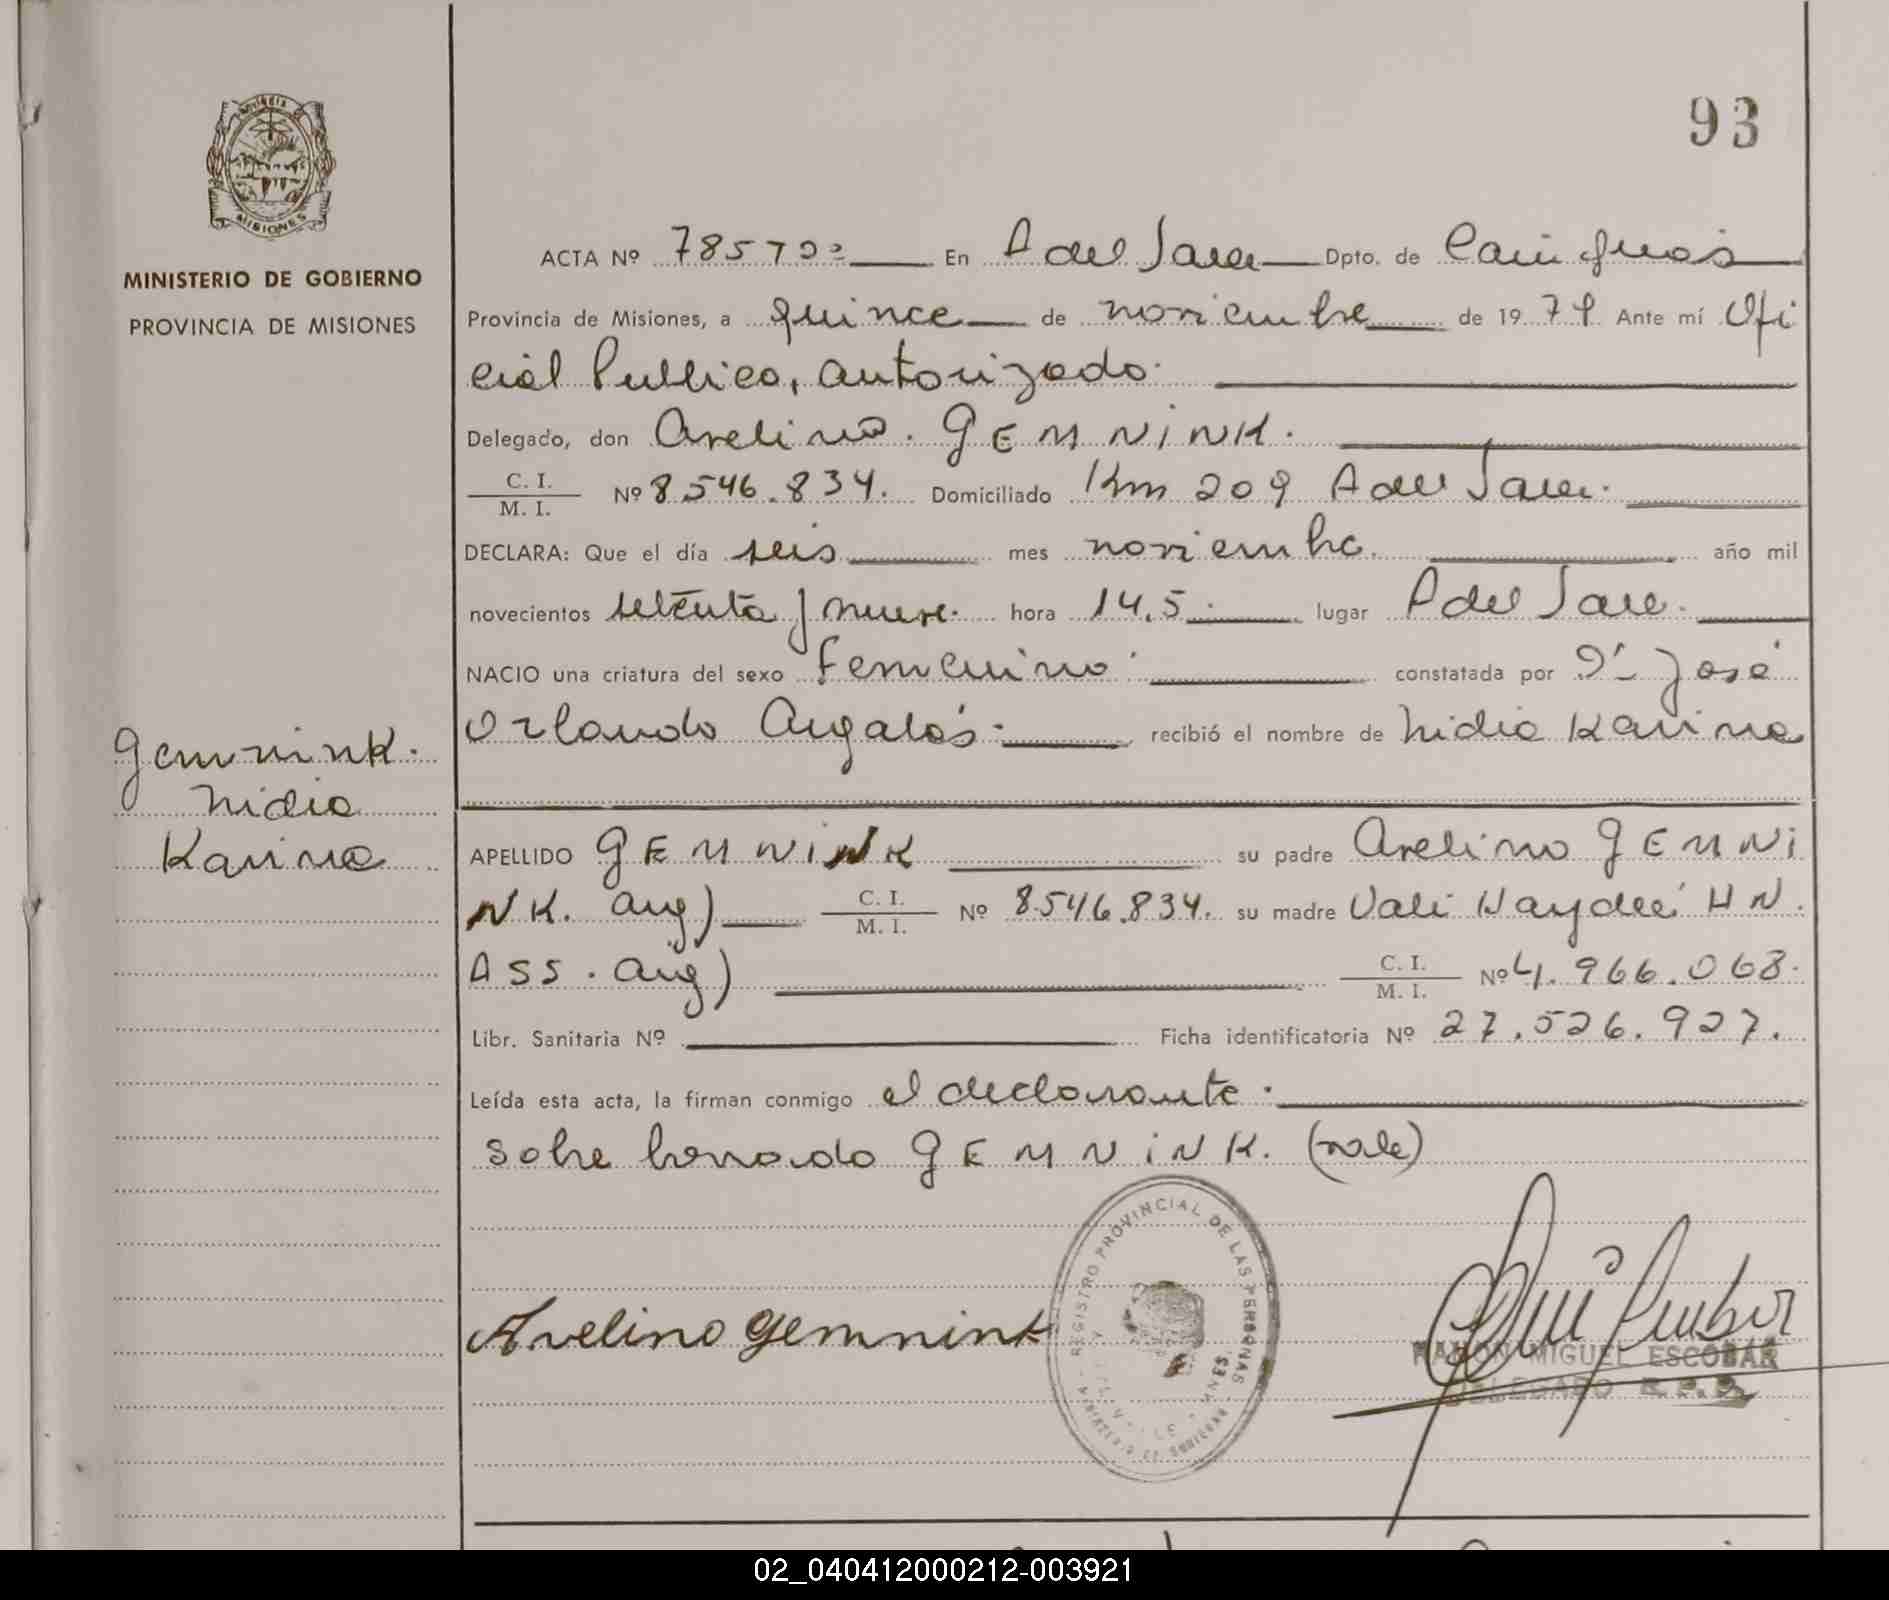 93
PROVINCIA
MISIONES
MINISTERIO DE GOBIERNO
PROVINCIA DE MISIONES
ACTA Nº En A del Valle Dpto. de Cainguas
Provincia de Misiones, a quince de noviembre de 1979 Ante mí Ofi
cial Publico, autorizado.
Delegado, don Avelino. GEMNiNK.
C. I.
M. I. Nº 8.546.834. Domiciliado Km 209 A del Valle.
DECLARA: Que el día seis mes noviembre. año mil
novecientos setenta y nueve. hora 14.5. lugar A del Valle.
NACIO una criatura del sexo femenino. constatada por Dr. José
Orlando recibió el nombre de Nidia Karina
Gemnink.
Nidia
Karina
APELLIDO GEMNiNK su padre Avelino GEMNi
NK. Arg) C. I.
M. I. Nº 8.546.834. su madre Vali Haydeé HN.
ASS. Arg) C. I.
M. I. Nº 4.966.068.
Libr. Sanitaria Nº Ficha identificatoria Nº 27.526.927.
Leída esta acta, la firman conmigo el declarante.
Sobre borrado GEMNiNK. (vale)
REGISTRO PROVINCIAL DE LAS PERSONAS
Avelino Gemnink
RAMON MIGUEL ESCOBAR
DELEGADO R.P.P.
02_040412000212-003921